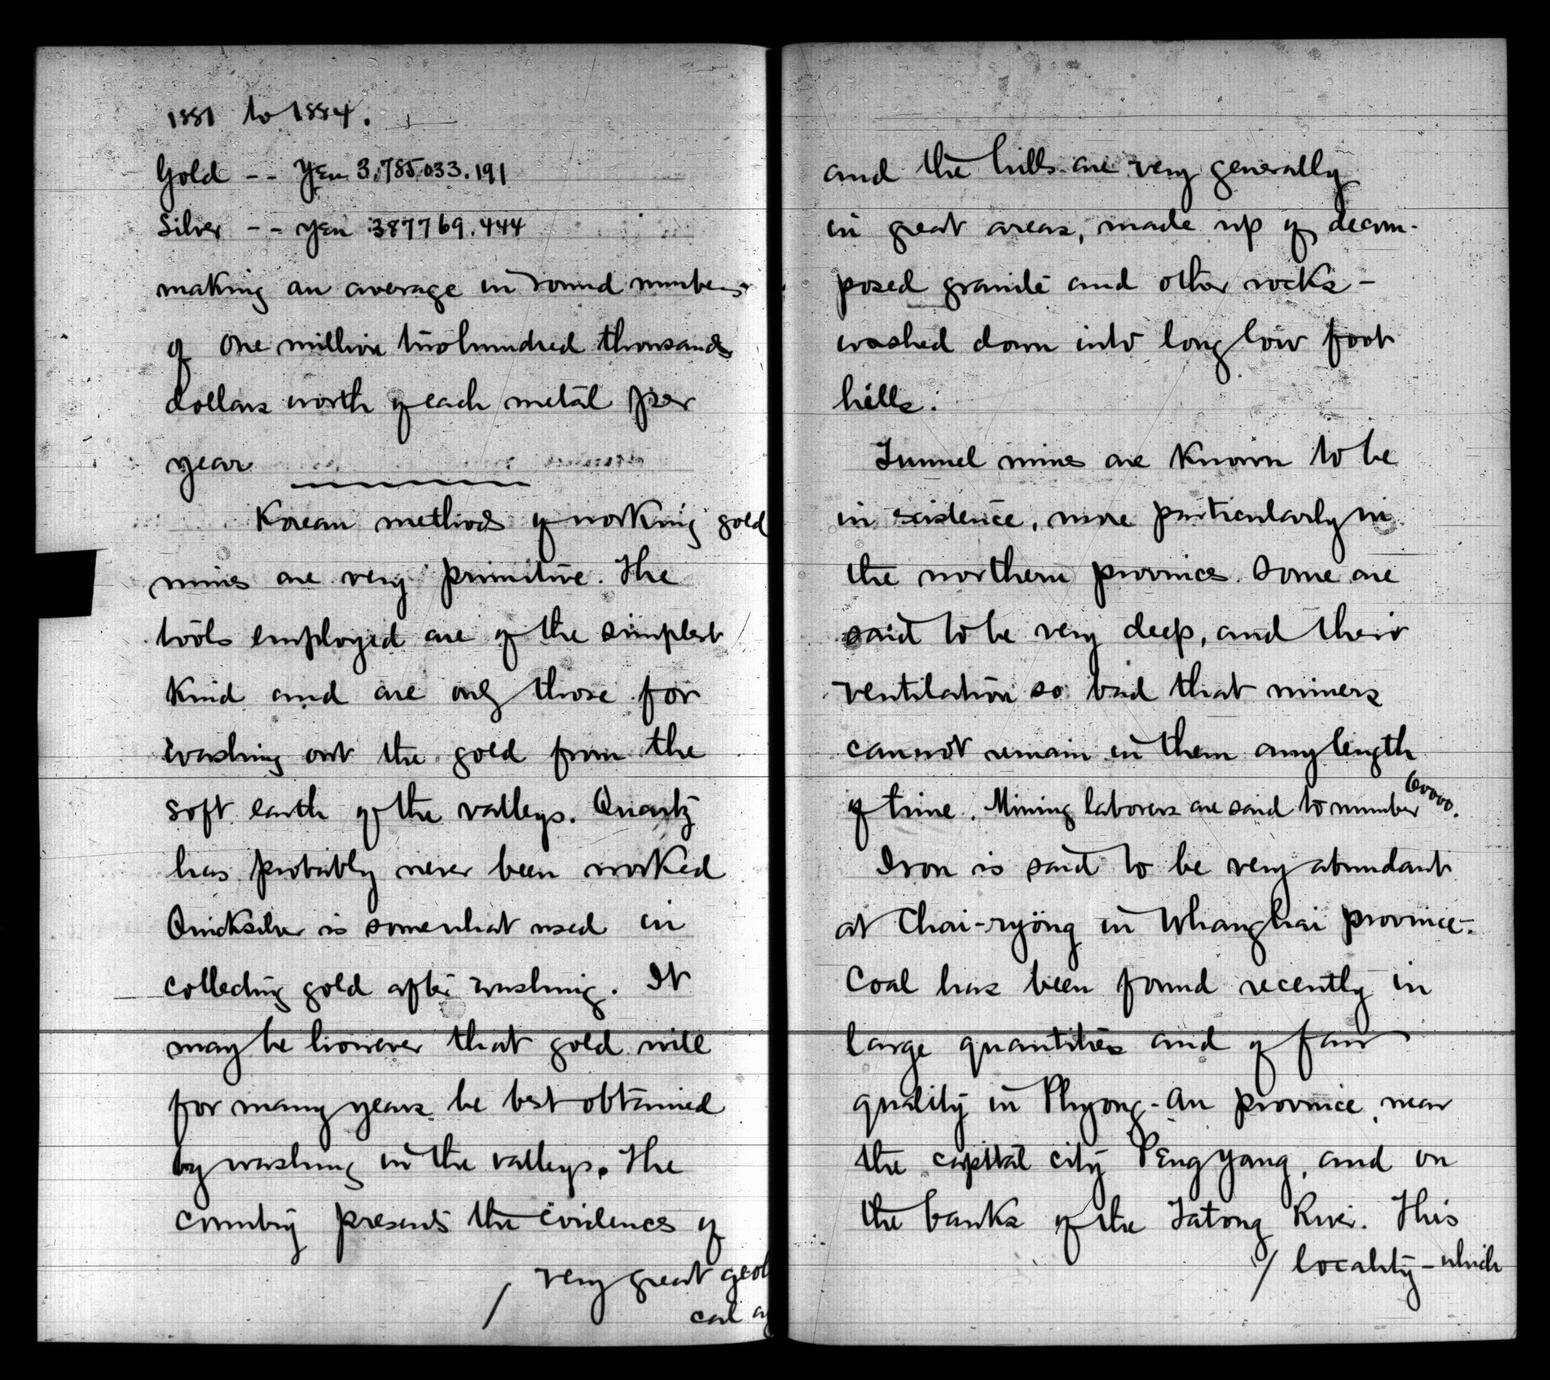 1881 to 1884.
Gold -- Yen 3,785,033.191
Silver -- Yen 387769.444
making an average in round numbers
of One million two hundred thousands
dollars worth of each metal per
year
Korean methods of working gold
mines are very primitive. The
tools employed are of the simplest
kind and are only those for
washing out the gold from the
soft earth of the valleys. Quartz
has probably never been worked
Quicksilver is somewhat used in
collecting gold after washing. It
may be however that gold will
for many years be best obtained
by washing in the valleys. The
country presents the evidences of
/ very great geol
cal ag
and the hills are very generally
in great areas, made up of decom-
posed granite and other rocks -
washed down into long low foot
hills.
Tunnel mines are known to be
in existence, more particularly in
the northern provinces. Some are
said to be very deep, and their
ventilation so bad that miners
cannot remain in them any length
of time. Mining laborers are said to number 60000.
Iron is said to be very abundant
at Chai-ryöng in Whanghai province.
Coal has been found recently in
large quantities and of fair
quality in Phyong-An province, near
the capital city Pengyang, and on
the banks of the Tatong River. This
/ locality - which